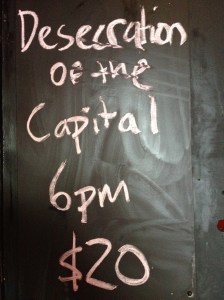 Desecration
of the
Capital
6pm
$20